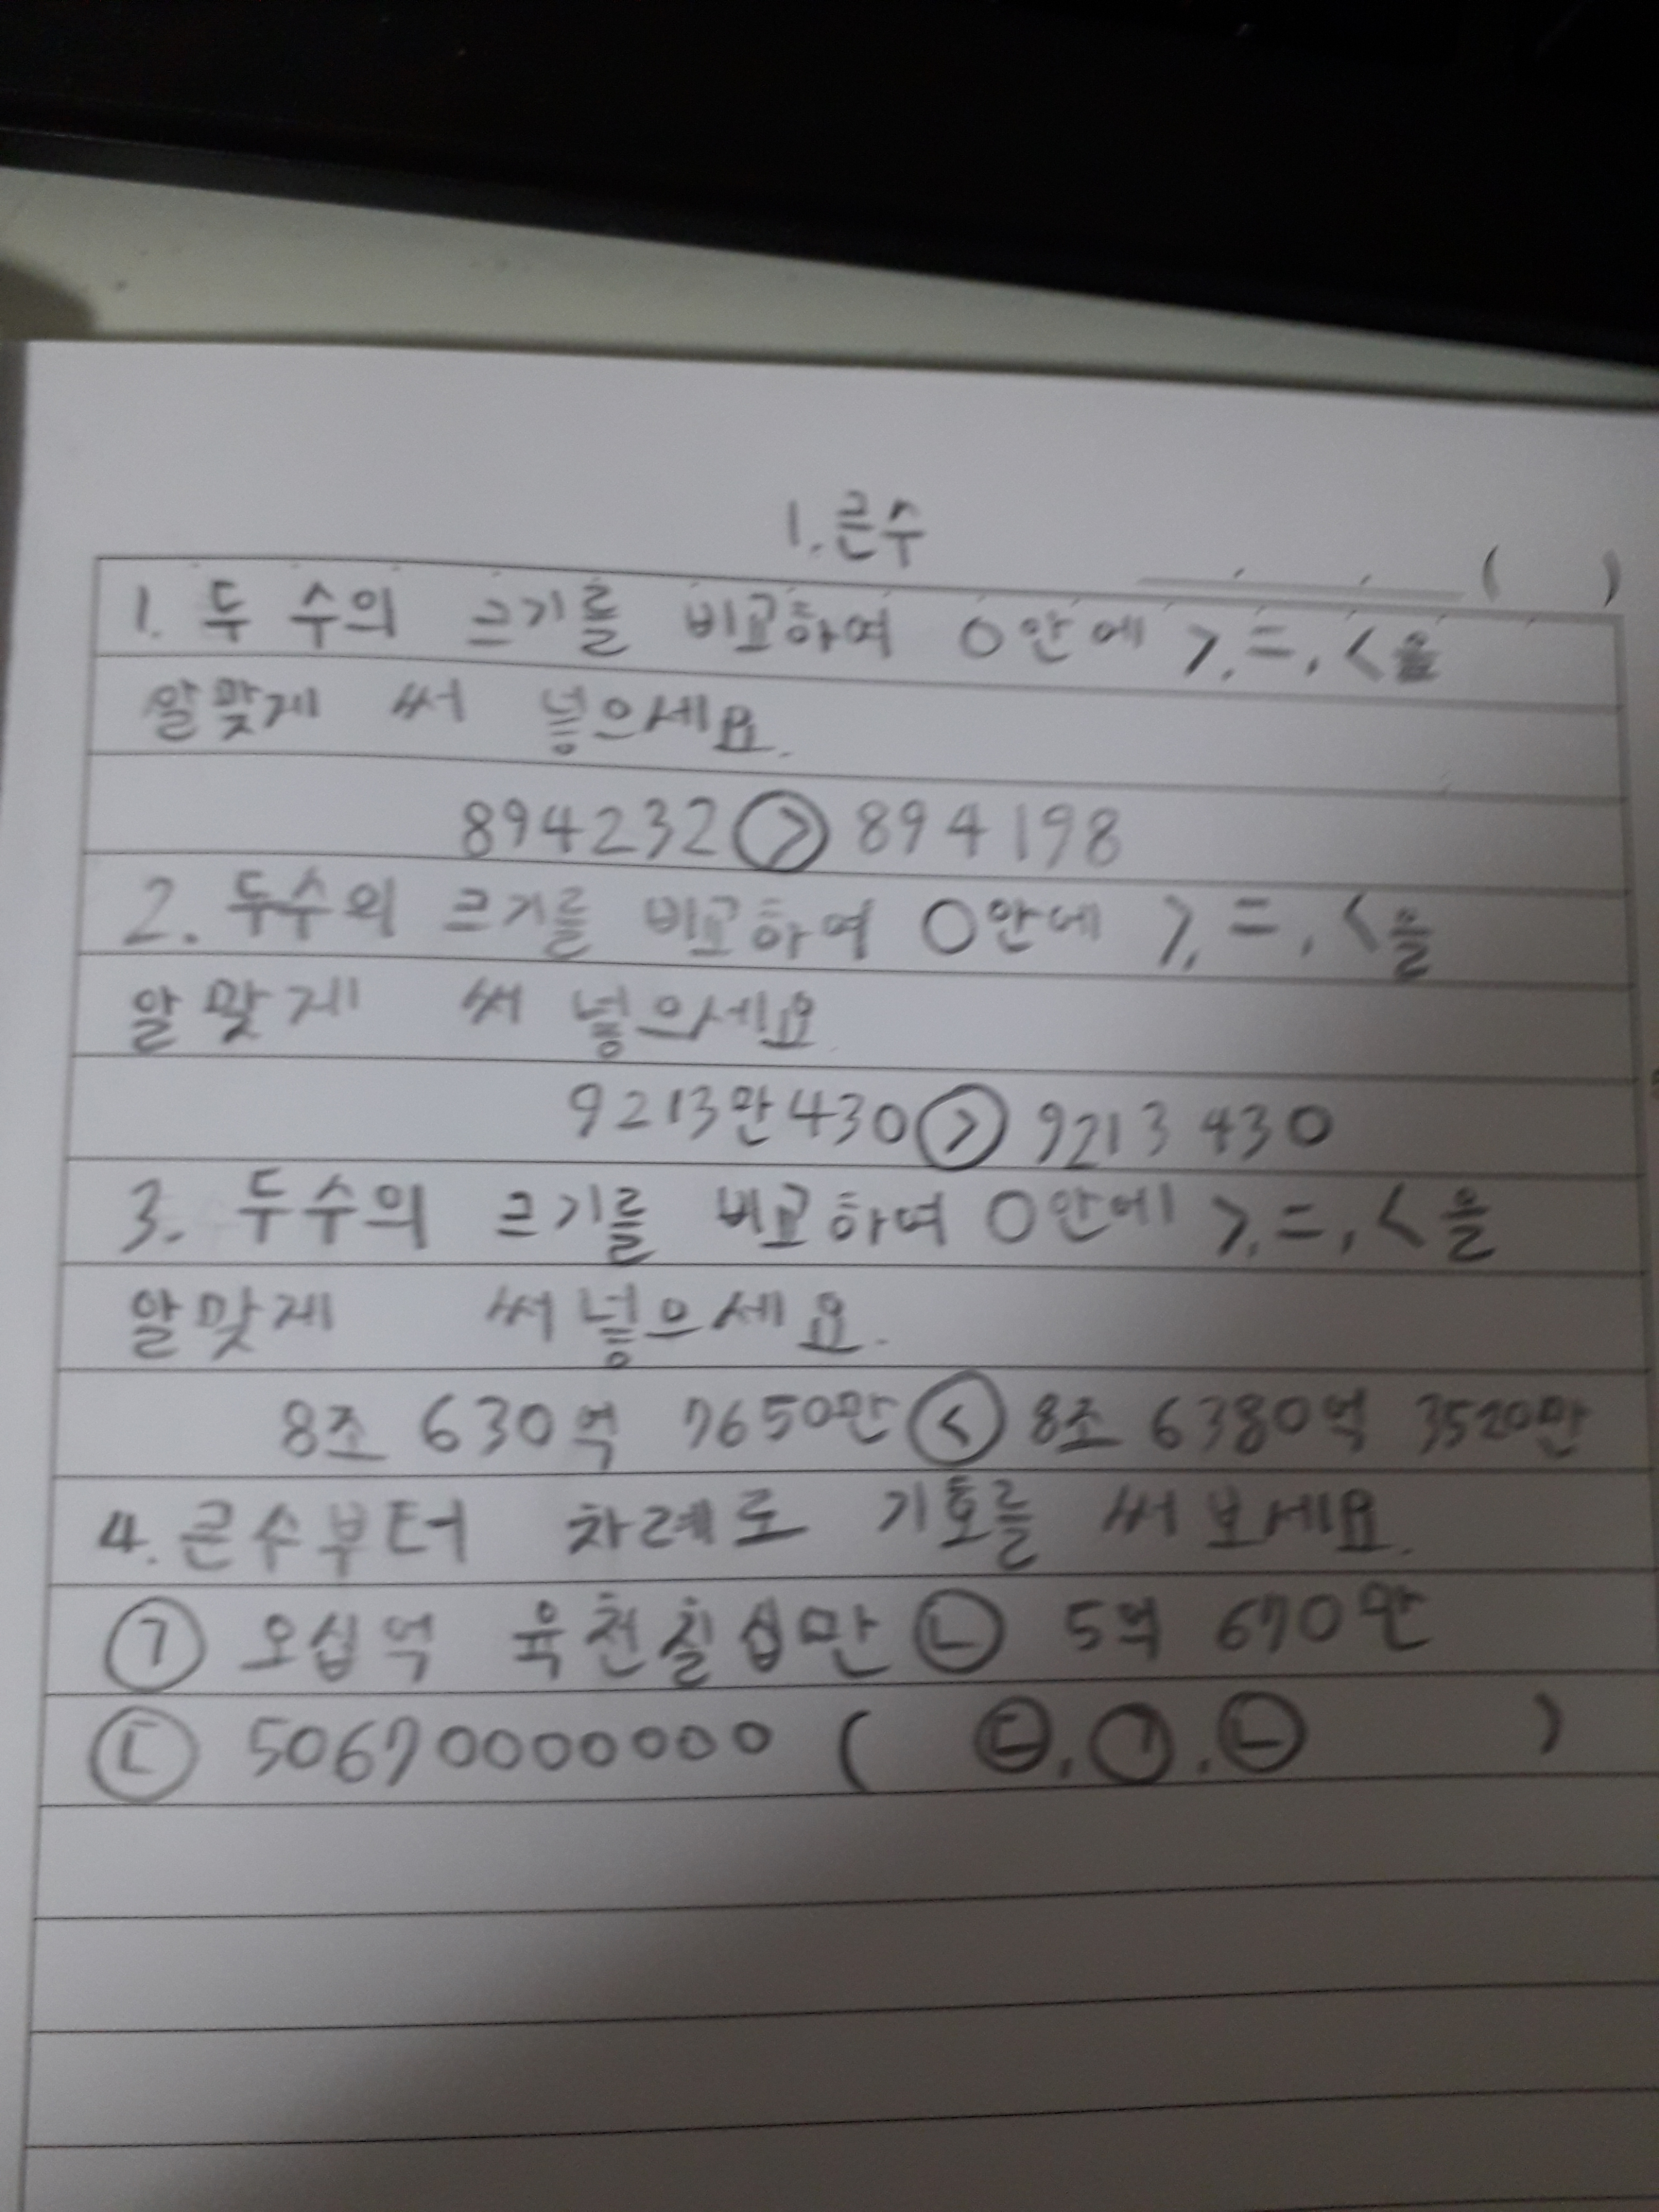 1. 큰수
( )
1. 두 수의 크기를 비교하여 ○안에 >, =, <을
알맞게 써 넣으세요.
894232 > 894198
2. 두수의 크기를 비교하여 ○안에 >, =, <을
알맞게 써 넣으세요
9213만430 > 9213430
3. 두수의 크기를 비교하여 ○안에 >, =, <을
알맞게 써 넣으세요.
8조 630억 7650만 < 8조 6380억 3520만
4. 큰수부터 차례로 기호를 써 보세요.
㉠ 오십억 육천칠십만 ㉡ 5억 670만
㉢ 50670000000 ( ㉢, ㉠, ㉡ )